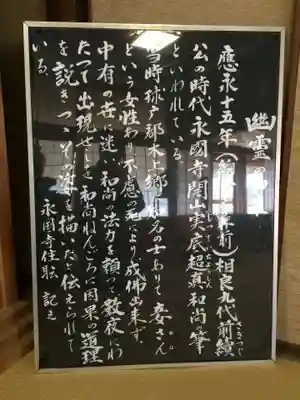 幽霊の
應永十五年
相良九代前續
公の時代永國寺開山実底超真和尚の筆
といわれている。
当時球广郡木上郷に
の士ありて妾さん
という女性あり不慮の死により成佛出来ず、
中有の世に迷い和尚の法力を頼って数夜にわ
たって出現せしを和尚ねんごろに因果の道理
を説きつゝその姿を描いたと伝えられて
いる。
永国寺住職 記之